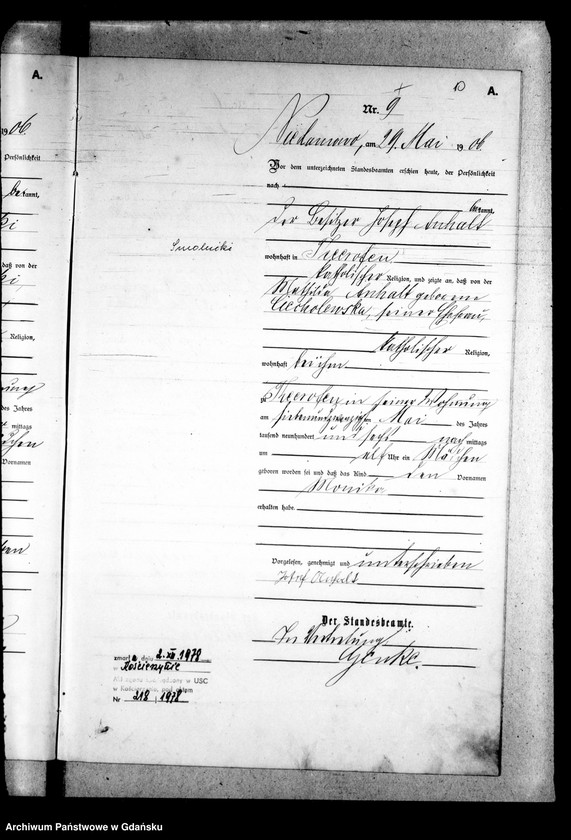 A.
06
Persönlichkeit
kannt,
daß von der
Religion,
des Jahres
mittags
Vornamen
A.
Nr. 9
am 29. Mai 1906.
Vor dem unterzeichneten Standesbeamten erschien heute, der Persönlichkeit
nach
bekannt,
der Besitzer Josef Anhalt
Smolnicki
wohnhaft in
katholischer Religion, und zeigte an, daß von der
Mathilde Anhalt geborene
Cicholewska, seiner Ehefrau,
katholischer Religion,
wohnhaft bei ihm
zu in seiner Wohnung
am siebenundzwanzigsten Mai des Jahres
tausend neunhundert und sechs nachmittags
um elf Uhr ein Mädchen
geboren worden sei und daß das Kind den Vornamen
Monika
erhalten habe.
Vorgelesen, genehmigt und unterschrieben
Josef Anhalt
Der Standesbeamte.
In Vertretung
zmarła dnia 2.XII.1978
w Kościerzynie
w USC
Nr 218 / 1978
Archiwum Państwowe w Gdańsku